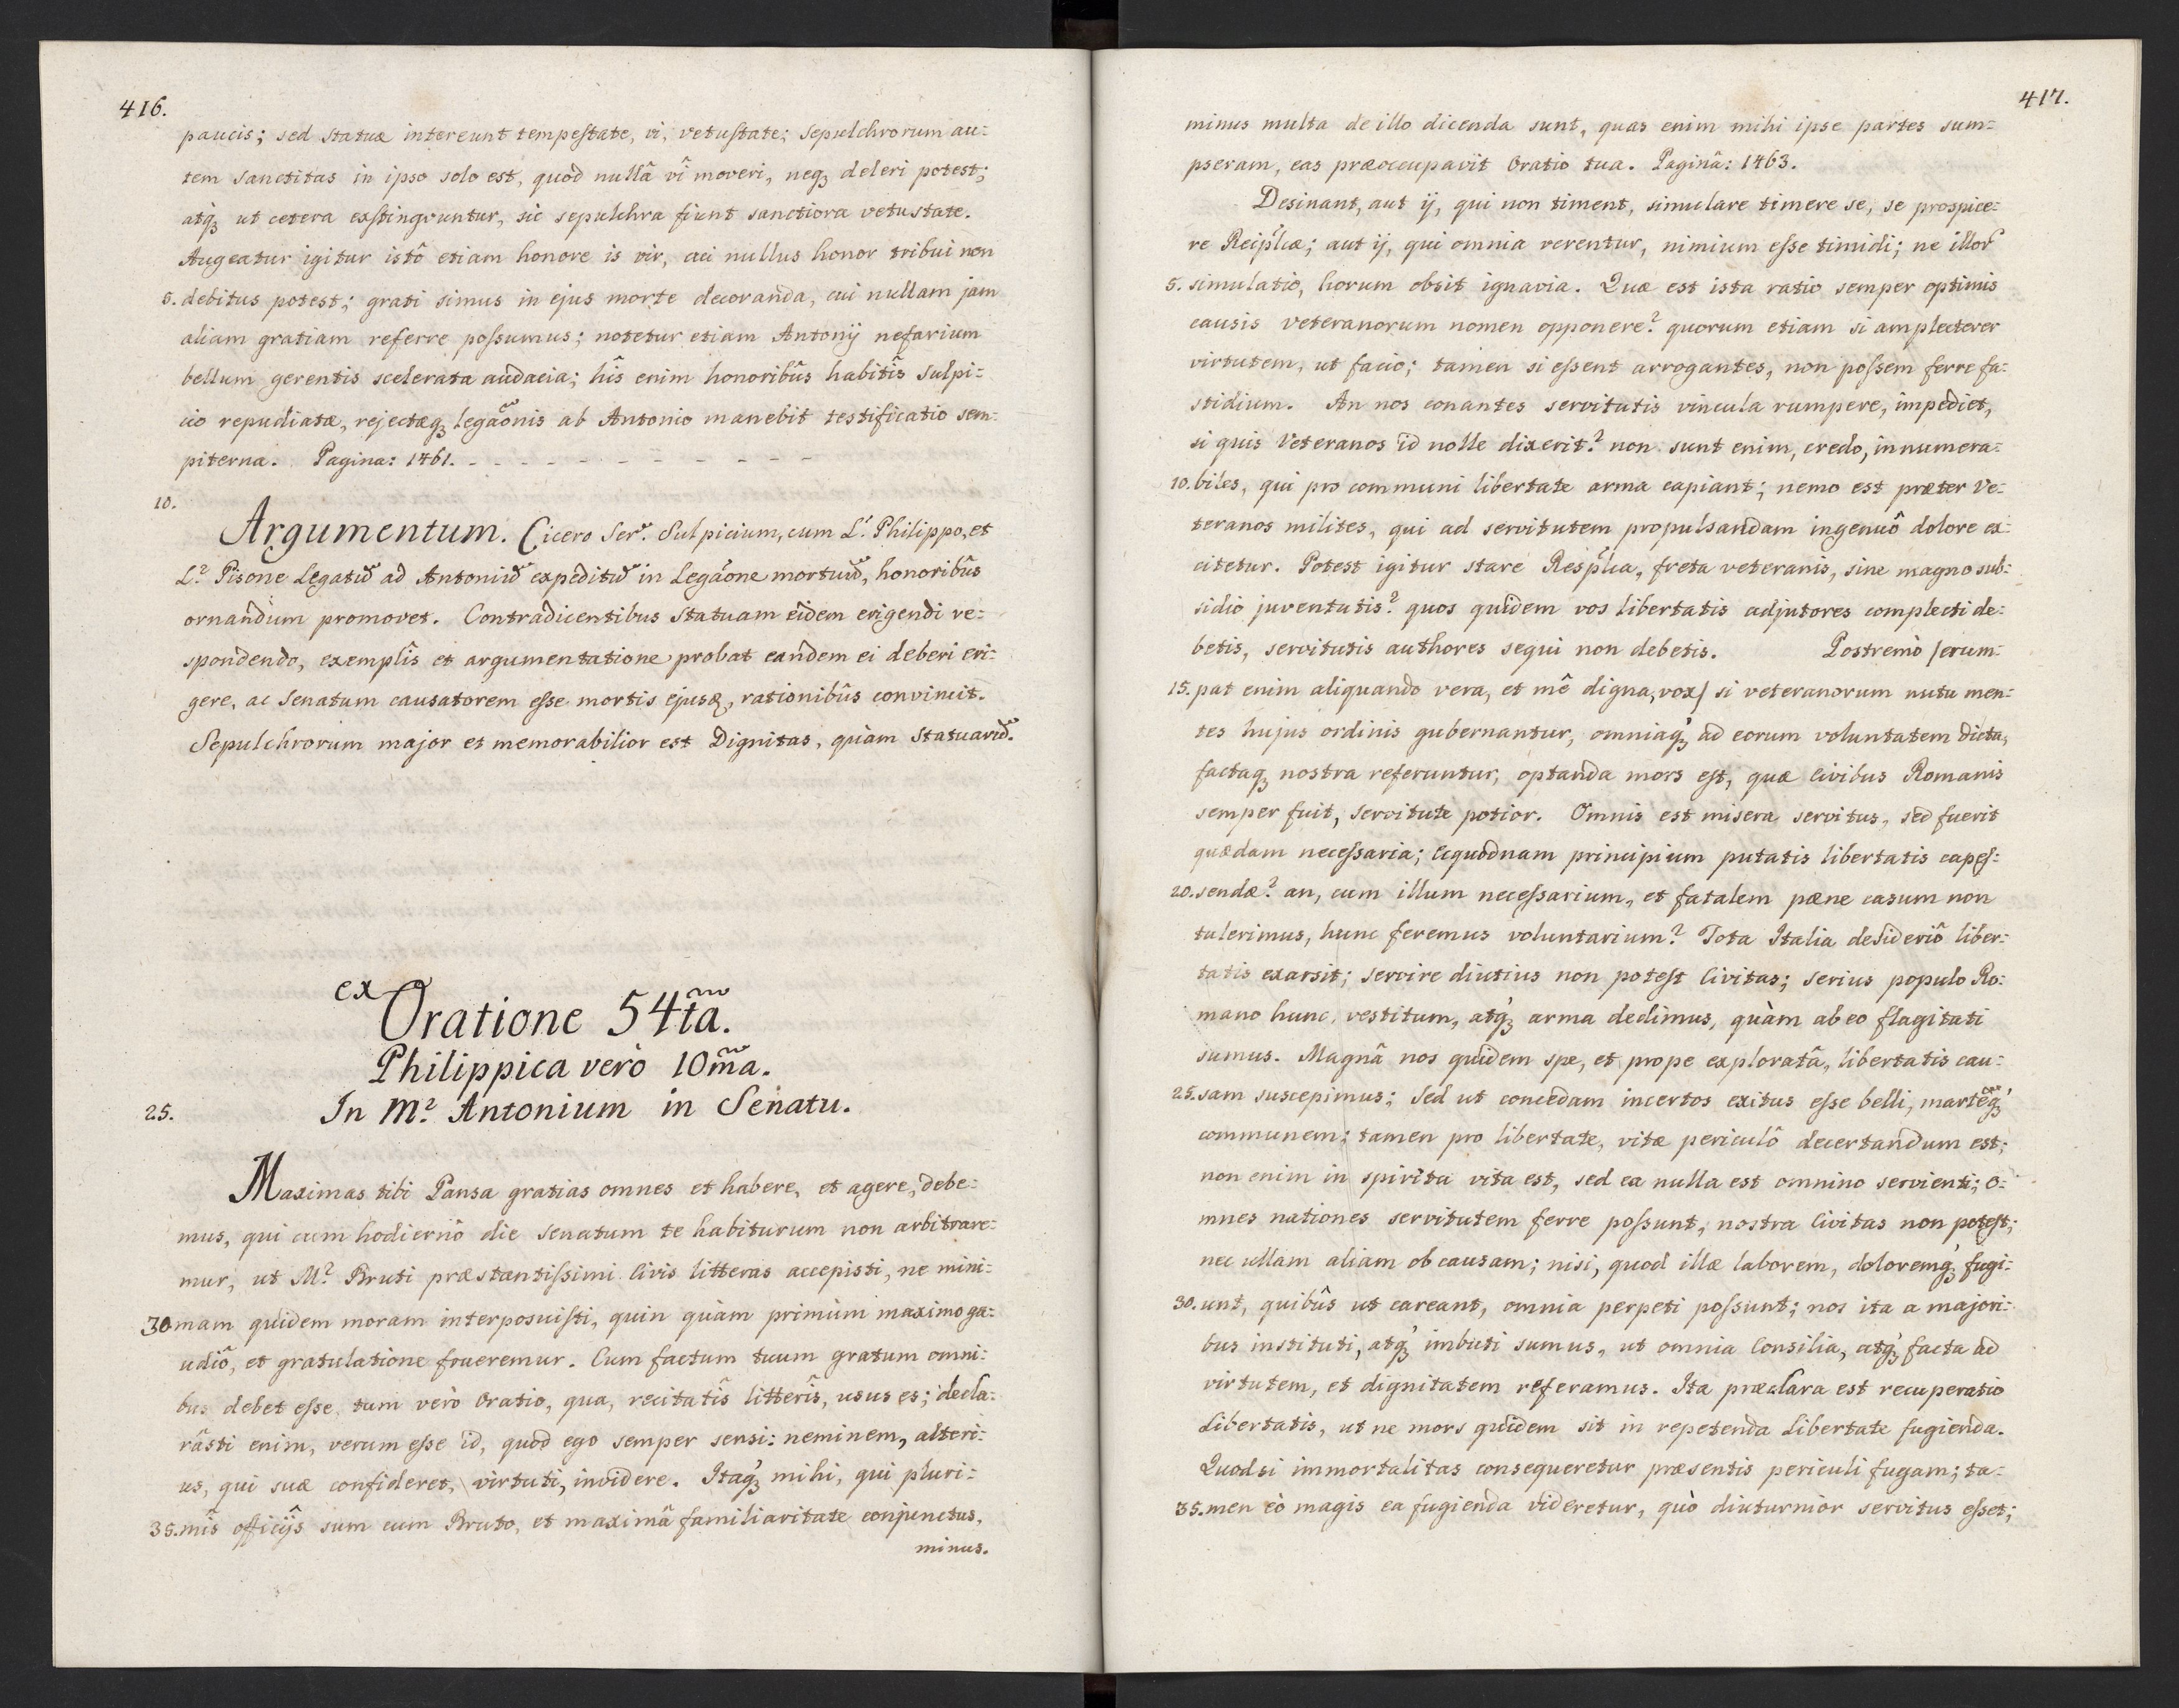 416.
paucis; sed statuæ intereunt tempestate, vi, vetustate; sepulchrorum au=
tem sanctitas in ipso solo est, quod nullâ vî moveri, neq₃ deleri potest;
atq₃ ut cetera exstingvuntur, sic sepulchra fiunt sanctiora vetustate.
Augeatur igitur istô etiam honore is vir, cui nullus honor tribui non
5. debitus potest; grati simus in ejus morte decoranda, cui nullam jam
aliam gratiam referre possumus; notetur etiam Antonij nefarium
bellum gerentis scelerata audacia; hîs enim honoribûs habitîs Sulpi=
cio repudiatæ, rejectæq₃ legãonis ab Antonio manebit testificatio sem=
piterna. Pagina: 1461. - - - - - - - - - - - -
10.
Argumentum. Cicero Ser. Sulpicium, cum L. Philippo, et
L. Pisone Legatũ ad Antoniũ expeditũ in Legãone mortuũ, honoribûs
ornandum promovet. Contradicentibus Statuam eidem erigendi re=
spondendo, exemplîs et argumentatione probat eandem ei deberi eri=
gere, ac Senatum causatorem esse mortis ejusd, rationibûs convincit.
Sepulchrorum major et memorabilior est Dignitas, quàm Statuarũ.
ex
Oratione 54ta.
Philippica verò 10ma.
25. In M. Antonium in Senatu.
Maximas tibi Pansa gratias omnes et habere, et agere, debe=
mus, qui cum hodiernô die senatum te habiturum non arbitrare=
mur, ut M. Bruti præstantissimi Civis litteras accepisti, ne mini=
30 mam quidem moram interposuisti, quin quàm primùm maximo ga=
udiô, et gratulatione frueremur. Cum factum tuum gratum omni=
bus debet esse, tum verò Oratio, qua, recitatîs litterîs, usus es; decla=
râsti enim, verum esse id, quod ego semper sensi: neminem, alteri=
us, qui suæ confideret, virtuti, invidere. Itaq₃ mihi, qui pluri=
35. mîs officijs sum cum Bruto, et maximâ familiaritate conjunctus,
minus.
417.
minus multa de illo dicenda sunt, quas enim mihi ipse partes sum=
pseram, eas præoccupavit Oratio tua. Paginâ: 1463.
Desinant, aut ij, qui non timent, simulare timere se, se prospice=
re Reipl̃cæ; aut ij, qui omnia verentur, nimium esse timidi; ne illor
5. simulatio, horum obsit ignavia. Quæ est ista ratio semper optimis
causis veteranorum nomen opponere? quorum etiam si amplecterer
virtutem, ut facio; tamen si essent arrogantes, non possem ferre fa=
stidium. An nos conantes servitutis vincula rumpere, impediet,
si quis Veteranos id nolle dixerit? non sunt enim, credo, innumera=
10. biles, qui pro communi libertate arma capiant; nemo est præter Ve=
teranos milites, qui ad servitutem propulsandam ingenuô dolore ex=
citetur. Potest igitur stare Respl̃ca, freta veteranis, sine magno sub=
sidio juventutis? quos quidem vos libertatis adjutores complecti de=
betis, servitutis authores sequi non debetis. Postremò /erum=
15. pat enim aliquando vera, et mê digna, vox/ si veteranorum nutu men=
tes hujus ordinis gubernantur, omniaq₃ ad eorum voluntatem dicta,
factaq₃ nostra referuntur; optanda mors est, quæ Civibus Romanis
semper fuit, servitute potior. Omnis est misera servitus, sed fuerit
quædam necessaria; ecquodnam principium putatis libertatis capes=
20. sendæ? an, cum illum necessarium, et fatalem pæne casum non
tulerimus, hunc feremus voluntarium? Tota Italia desideriô liber=
tatis exarsit; servire diutius non potest Civitas; serius populo Ro=
mano hunc vestitum, atq₃ arma dedimus, quàm ab eo flagitati
sumus. Magnâ nos quidem spe, et prope exploratâ, libertatis cau=
25. sam suscepimus; sed ut concedam incertos exitus esse belli, martẽq₃
communem; tamen pro libertate, vitæ periculô decertandum est;
non enim in spiritu vita est, sed ea nulla est omnino servienti; o=
mnes nationes servitutem ferre possunt, nostra Civitas non potest;
nec ullam aliam ob causam; nisi, quod illæ laborem, doloremq₃ fugi=
30. unt, quibûs ut careant, omnia perpeti possunt; nos ita a majori=
bus instituti, atq₃ imbuti sumus, ut omnia Consilia, atq₃ facta ad
virtutem, et dignitatem referamus. Ita præclara est recuperatio
Libertatis, ut ne mors quidem sit in repetenda Libertate fugienda.
Quodsi immortalitas consequeretur præsentis periculi fugam; ta=
35. men eò magis ea fugienda videretur, quò diuturnior servitus esset;